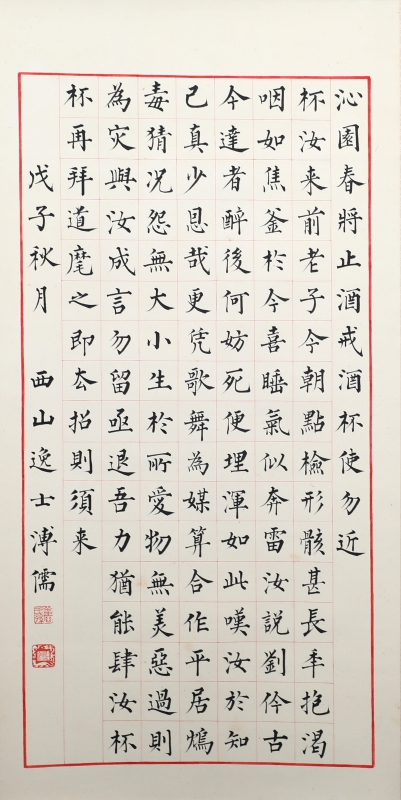 沁園春將止酒戒酒杯使勿近
杯汝来前老子今朝點檢形骸甚長秊抱渴
咽如焦釜於今喜睡氣似奔雷汝説劉伶古
今達者醉後何妨死便埋渾如此嘆汝於知
己真少恩哉更凭歌舞為媒算合作平居鴆
毒猜况怨無大小生於所愛物無美惡過則
為灾與汝成言勿留亟退吾力猶能肆汝杯
杯再拜道麾之即厺招則須来
戊子秋月 西山逸士溥儒